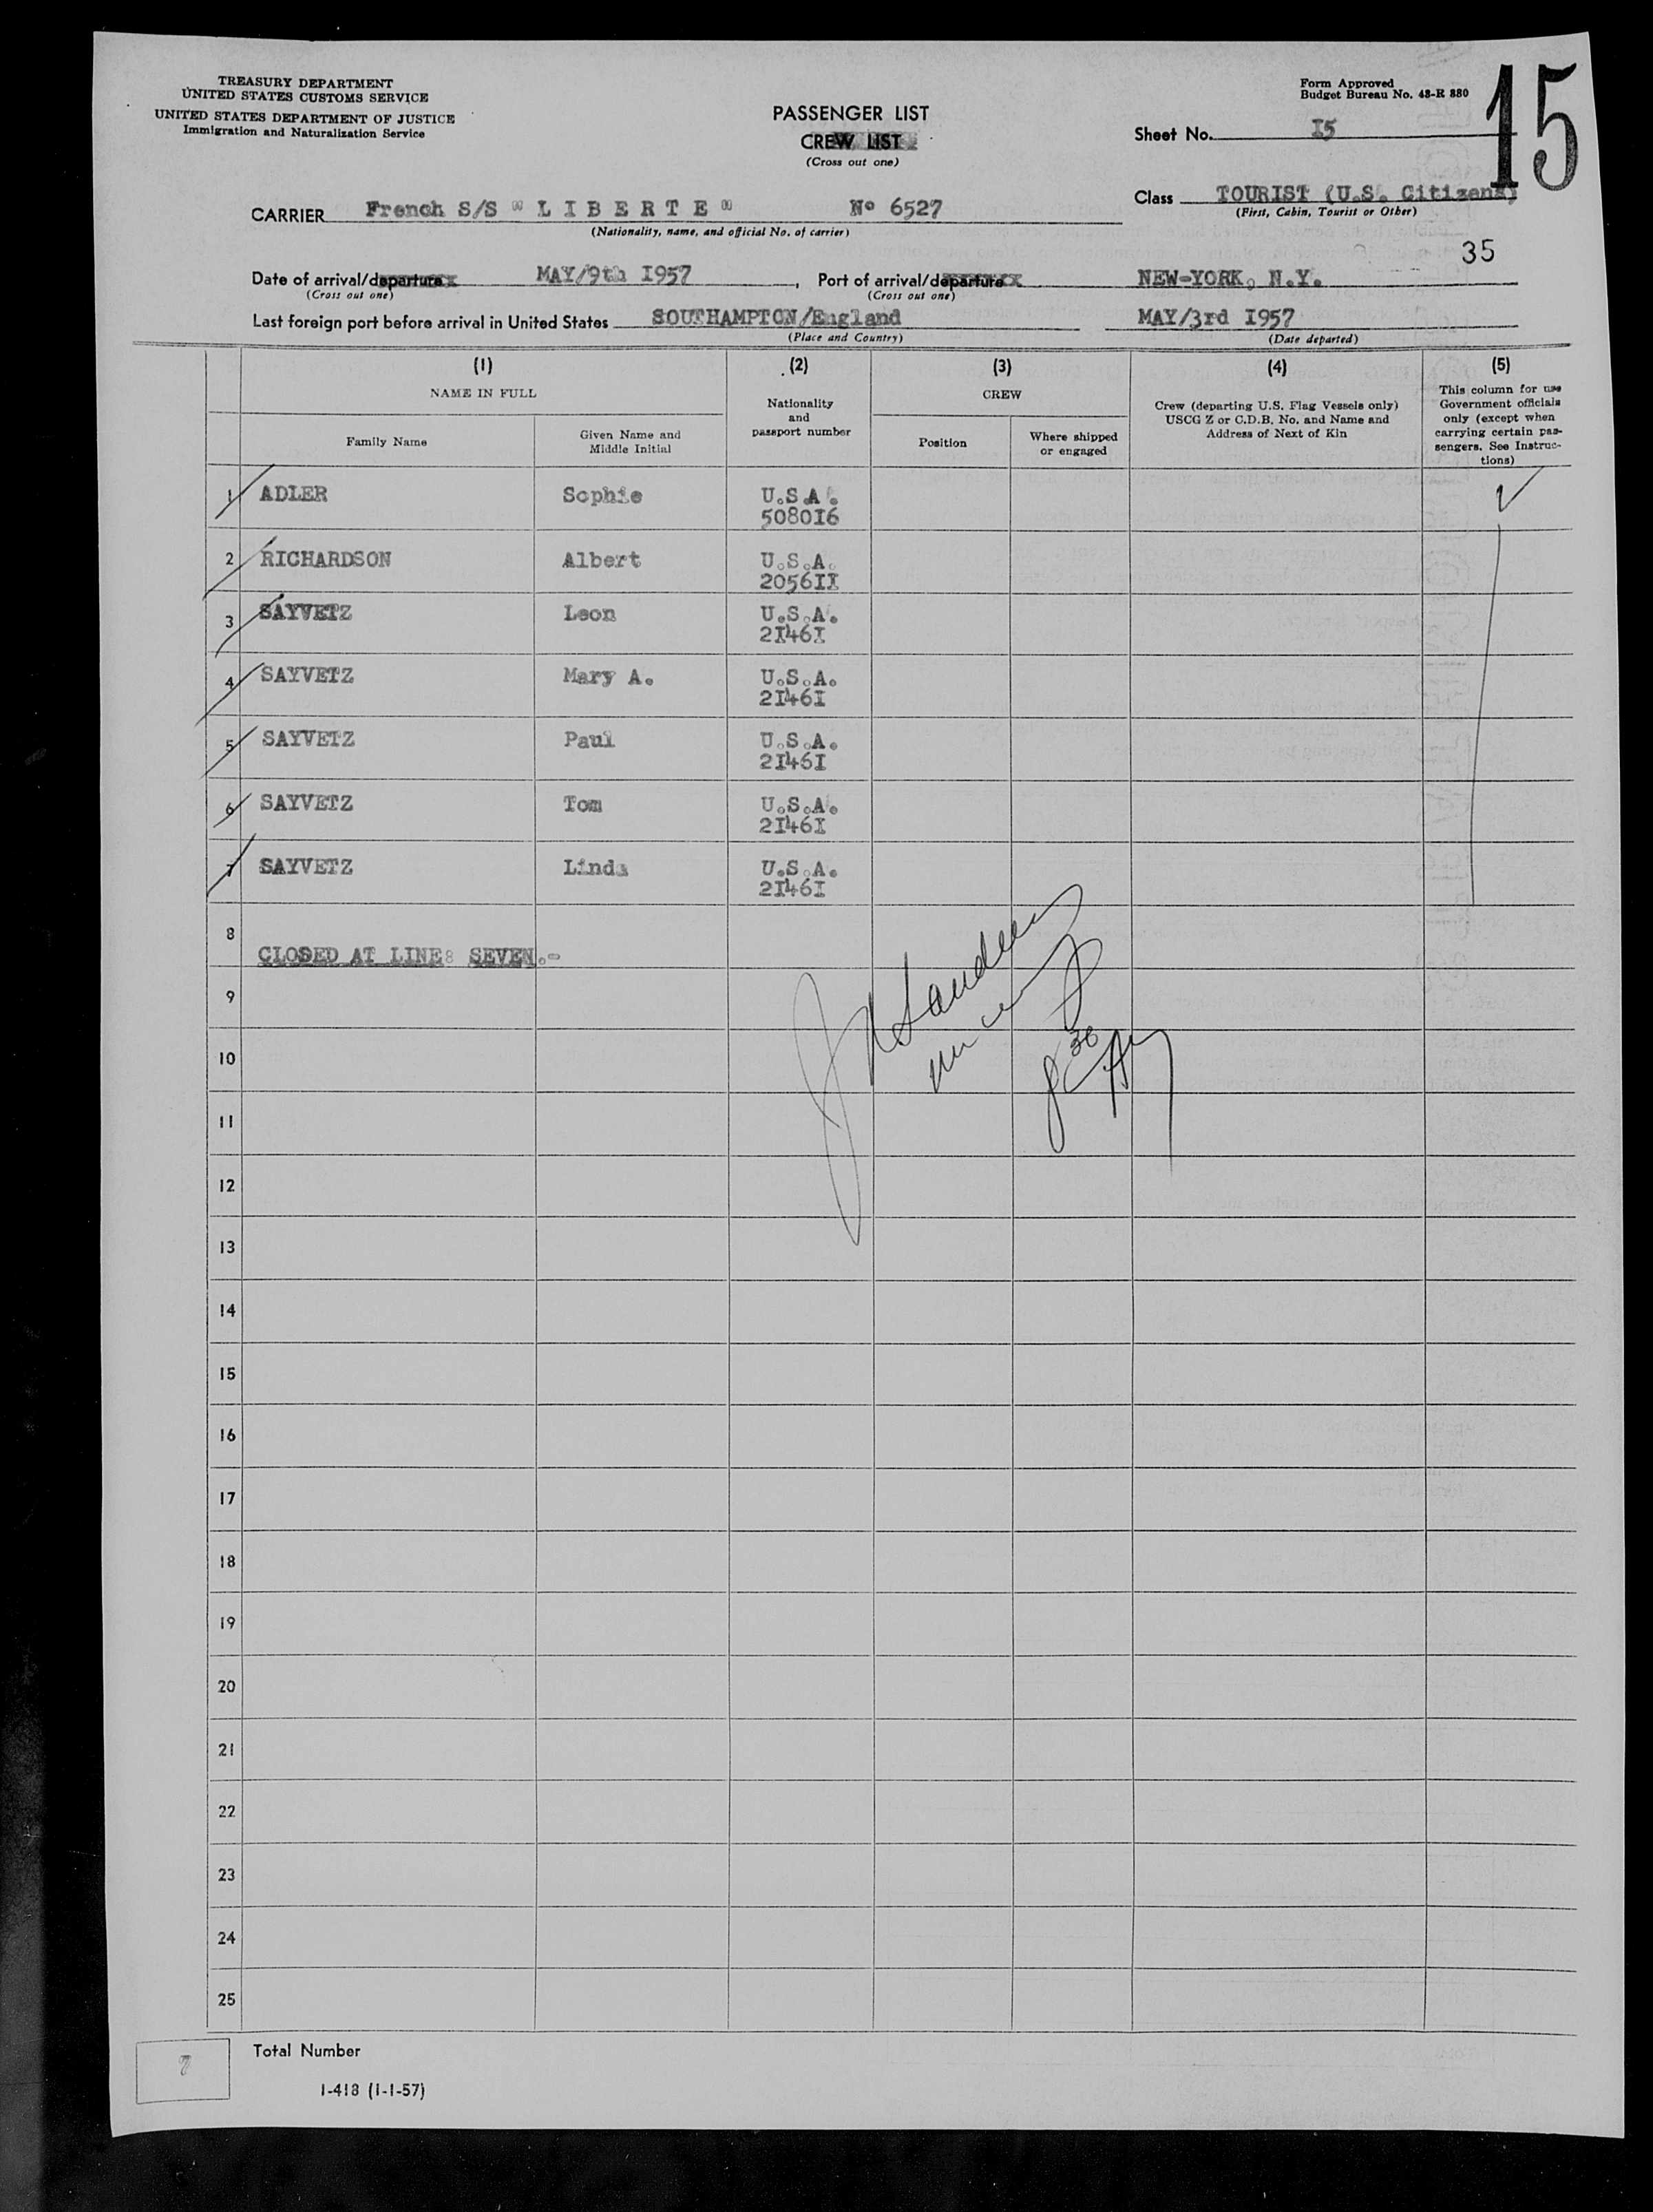 TREASURY DEPARTMENT
UNITED STATES CUSTOMS SERVICE
UNITED STATES DEPARTMENT OF JUSTICE
Immigration and Naturalization Service
PASSENGER LIST
CREW LIST
(Cross out one)
Form Approved
Budget Bureau No. 43-R 880
15
Sheet No. I5
Class TOURIST (U.S. Citizens)
(First, Cabin, Tourist or Other)
CARRIER French S/S " L I B E R T E " Nº 6527
(Nationality, name, and official No. of carrier)
35
Date of arrival/departure MAY/9th I957, Port of arrival/departure NEW-YORK, N.Y.
(Cross out one) (Cross out one)
Last foreign port before arrival in United States SOUTHAMPTON/England MAY/3rd I957
(Place and Country) (Date departed)
(1) (2) (3) (4) (5)
NAME IN FULL
Family Name
Given Name and
Middle Initial
Nationality
and
passport number
CREW
Position
Where shipped
or engaged
Crew (departing U.S. Flag Vessels only)
USCG Z or C.D.B. No. and Name and
Address of Next of Kin
This column for use
Government officials
only (except when
carrying certain pas-
sengers. See Instruc-
tions)
1 ADLER Sophie U.S.A.
5080I6
2 RICHARDSON Albert U.S.A.
2056II
3 SAYVETZ Leon U.S.A.
2I46I
4 SAYVETZ Mary A. U.S.A.
2I46I
5 SAYVETZ Paul U.S.A.
2I46I
6 SAYVETZ Tom U.S.A.
2I46I
7 SAYVETZ Linda U.S.A.
2I46I
8
CLOSED AT LINE: SEVEN.-
9
10
11
12
13
14
15
16
17
18
19
20
21
22
23
24
25
7 Total Number
I-418 (1-1-57)